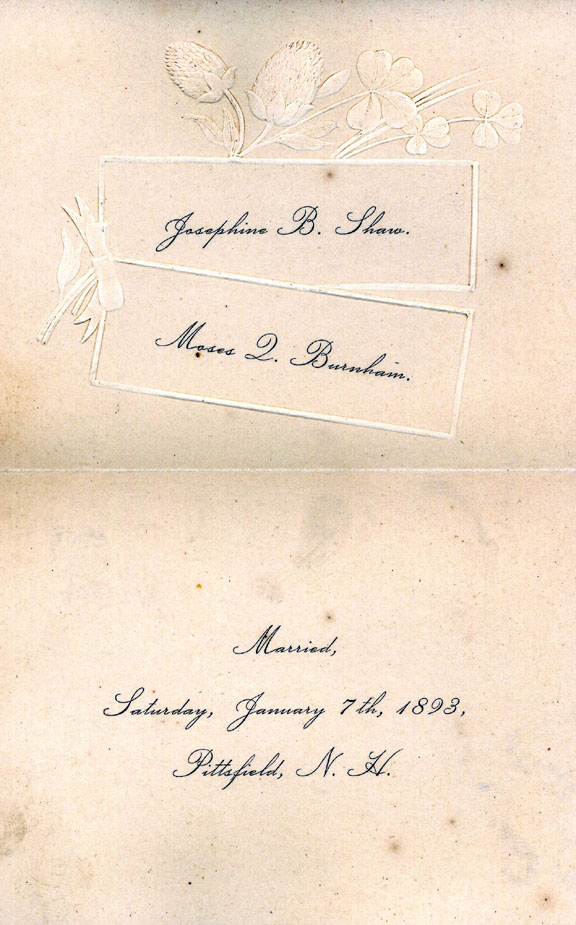 Josephine B. Shaw.
Moses Q. Burnham.
Married,
Saturday, January 7th, 1893,
Pittsfield, N. H.